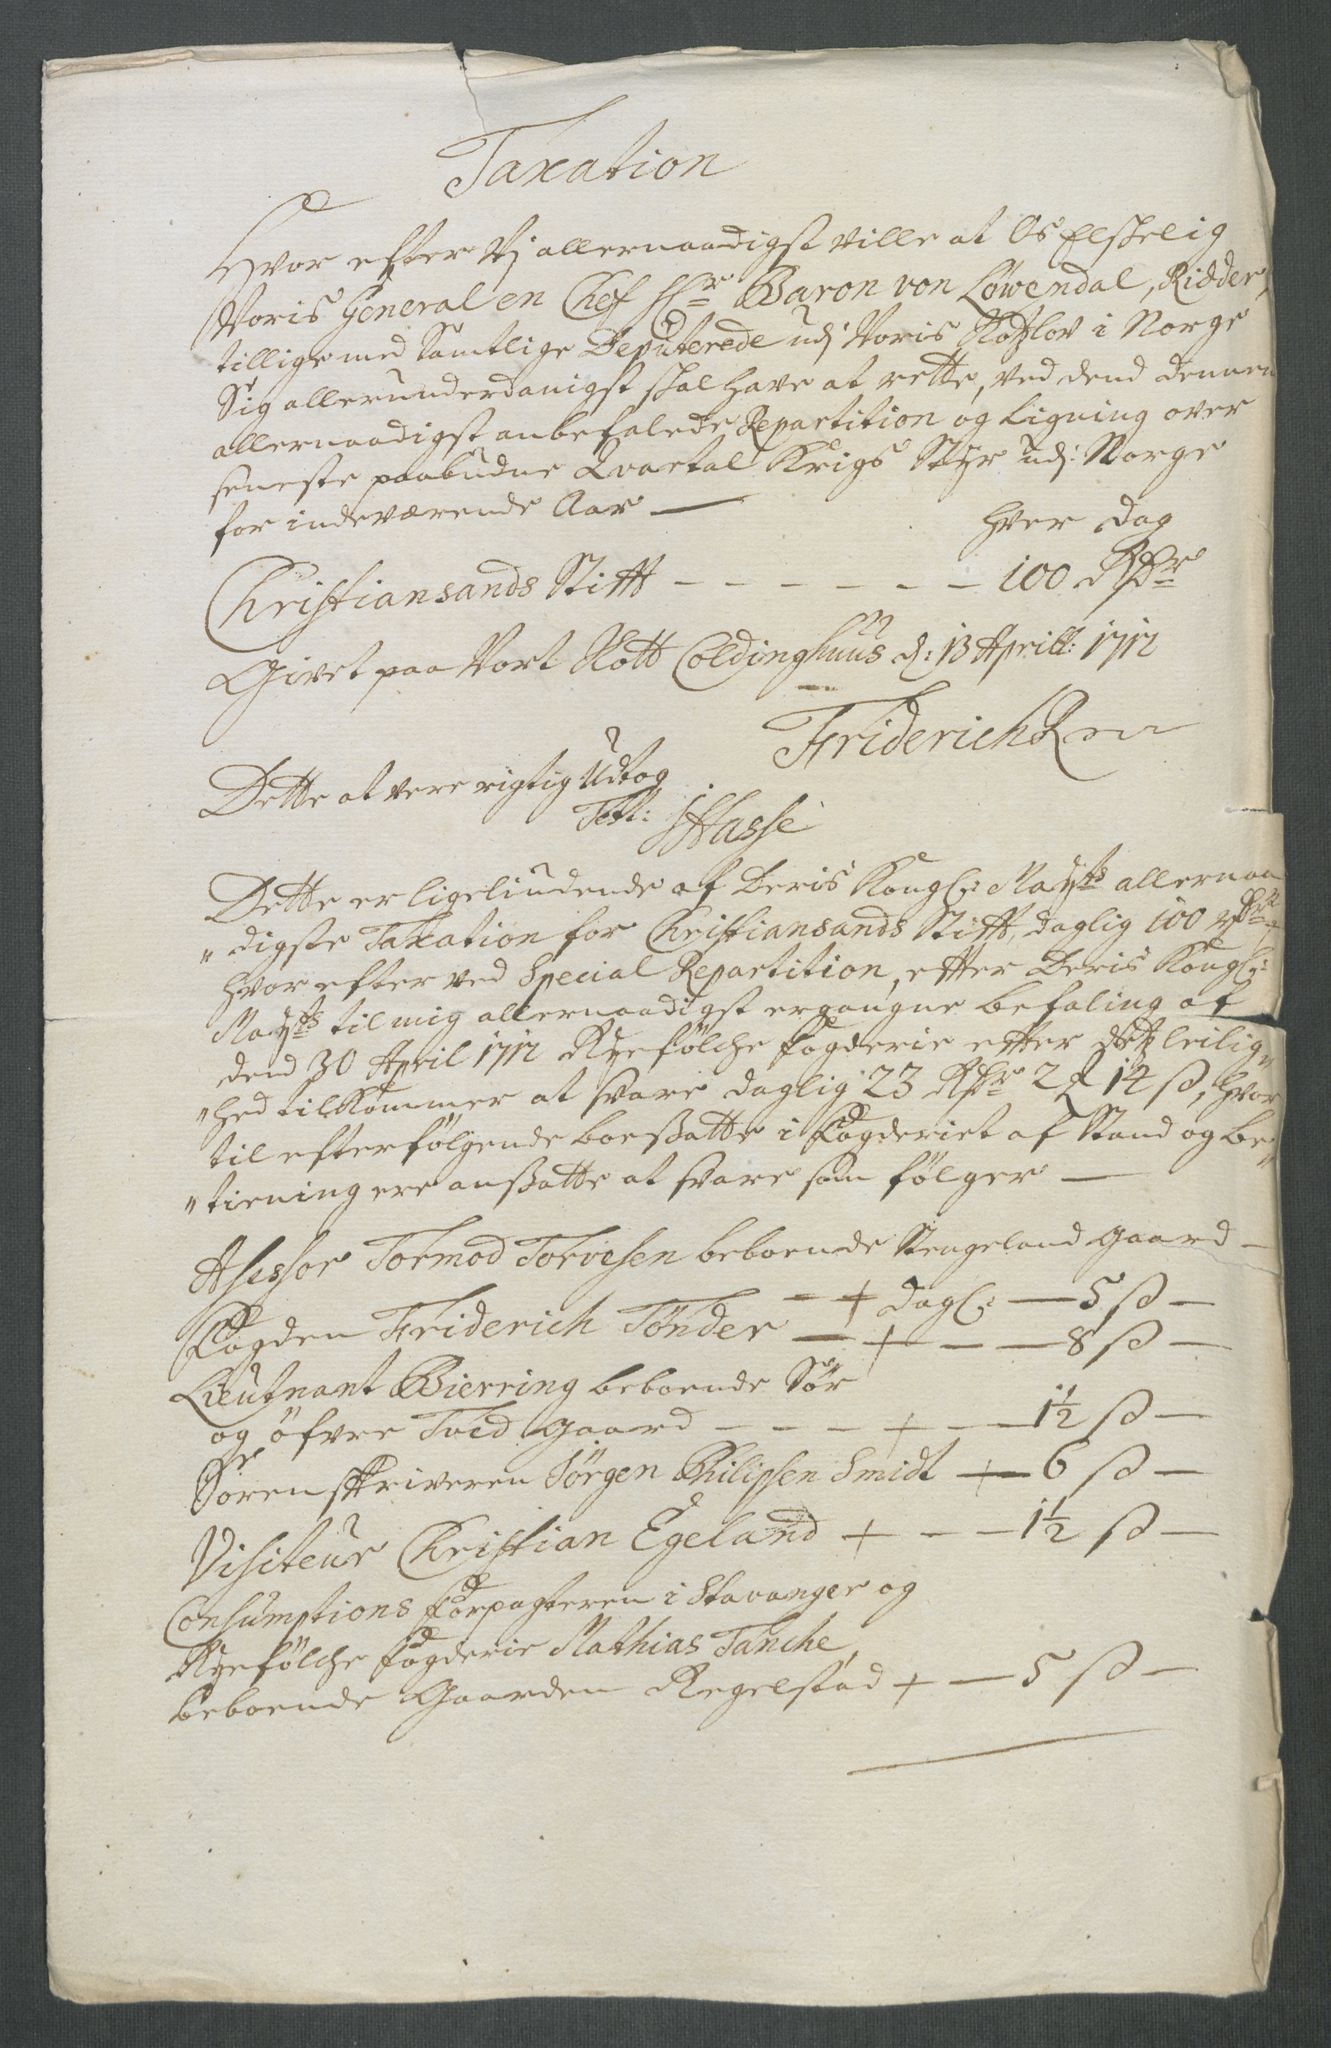 Taxation
Hvor efter Vj allernaadigst ville at Os Elskelig
Voris General en Chef Hr Baron von Löwendal, Ridder,
tillige med Samtlige Deputerede udj Voris Slotzlov i Norge
Sig allerunderdanigst skal have at rette, ved dend denne
allernaadigst anbefalede Repartition og Ligning over
seneste paabudne Qvartal Krigs Styr udj Norge
for indeværende Aar —
hver dag
Christiansands Stifft - - - - - - — 100 Rdr
Givet paa Vort Slott Coldinghuus d: 13 Aprill: 1712
Friderich R
Dette at vere rigtig Udtog
Test: JHasse
Dette er ligeliudende af Deris Kongl: Maÿts allernaa
"digste Taxation for Christiansands Stifft, daglig 100 rdr
hvor efter ved Special Repartition, efter Deris Kongl:
Maÿts til mig allernaadigst ergangne befaling af
dend 30 April 1712 Ryefölche fogderie efter dets leilig"
"hed tilkommer at svare daglig 23 Rdr 2 14 ß, hvor
til efterfölgende boesatte i Fogderiet af Stand og be"
"tiening ere ansatte at svare som fölger —
Assessor Tormod Torvesen beboende Stangeland gaard —
- + dagl: — 5 ß —
Fogden Friderich Tönder — + - — 8 ß —
Lieutnant Bierring beboende Sör
og öfvre Tved gaard - - - + - — 1½ ß —
Sorenskriveren Jörgen Philipsen Smidt + — 6 ß —
Visiteur Christian Egeland + - — 1½ ß —
Consumptions forpagteren i Stavanger og
Ryefölche fogderie Mathias Tanche,
beboende Gaarden Regelstad + — 5 ß —